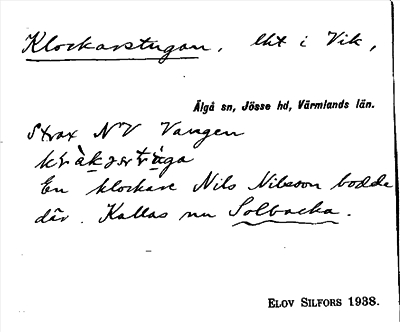 Klockarstugan, lht i Vik,
Älgå sn, Jösse hd, Värmlands län.
Strax NV Vangen
En klockare Nils Nilsson bodde
där. Kallas nu Solbacka.
ELOV SILFORS 1938.